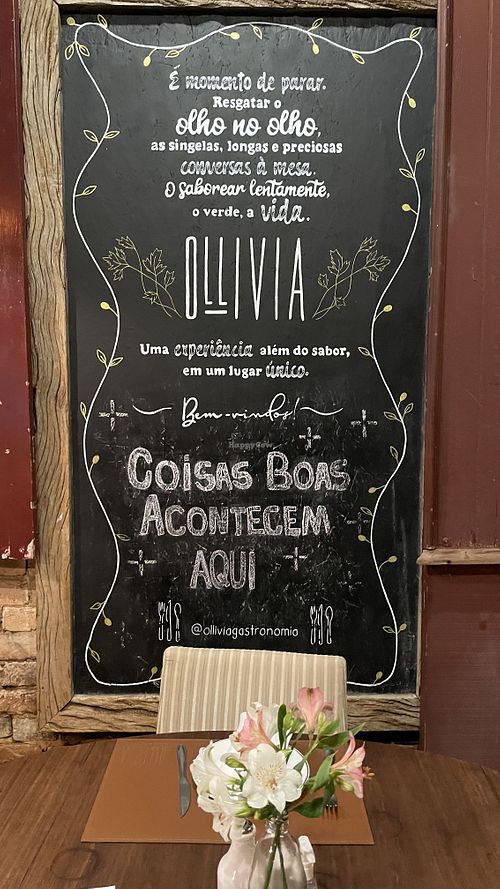 É momento de parar.
Resgatar o
olho no olho,
as singelas, longas e preciosas
conversas à mesa.
O saborear lentamente,
o verde, a vida.
OLLIVIA
Uma experiência além do sabor,
em um lugar único.
Bem-vindos!
HappyCow
COISAS BOAS
ACONTECEM
AQUI
@olliviagastronomia